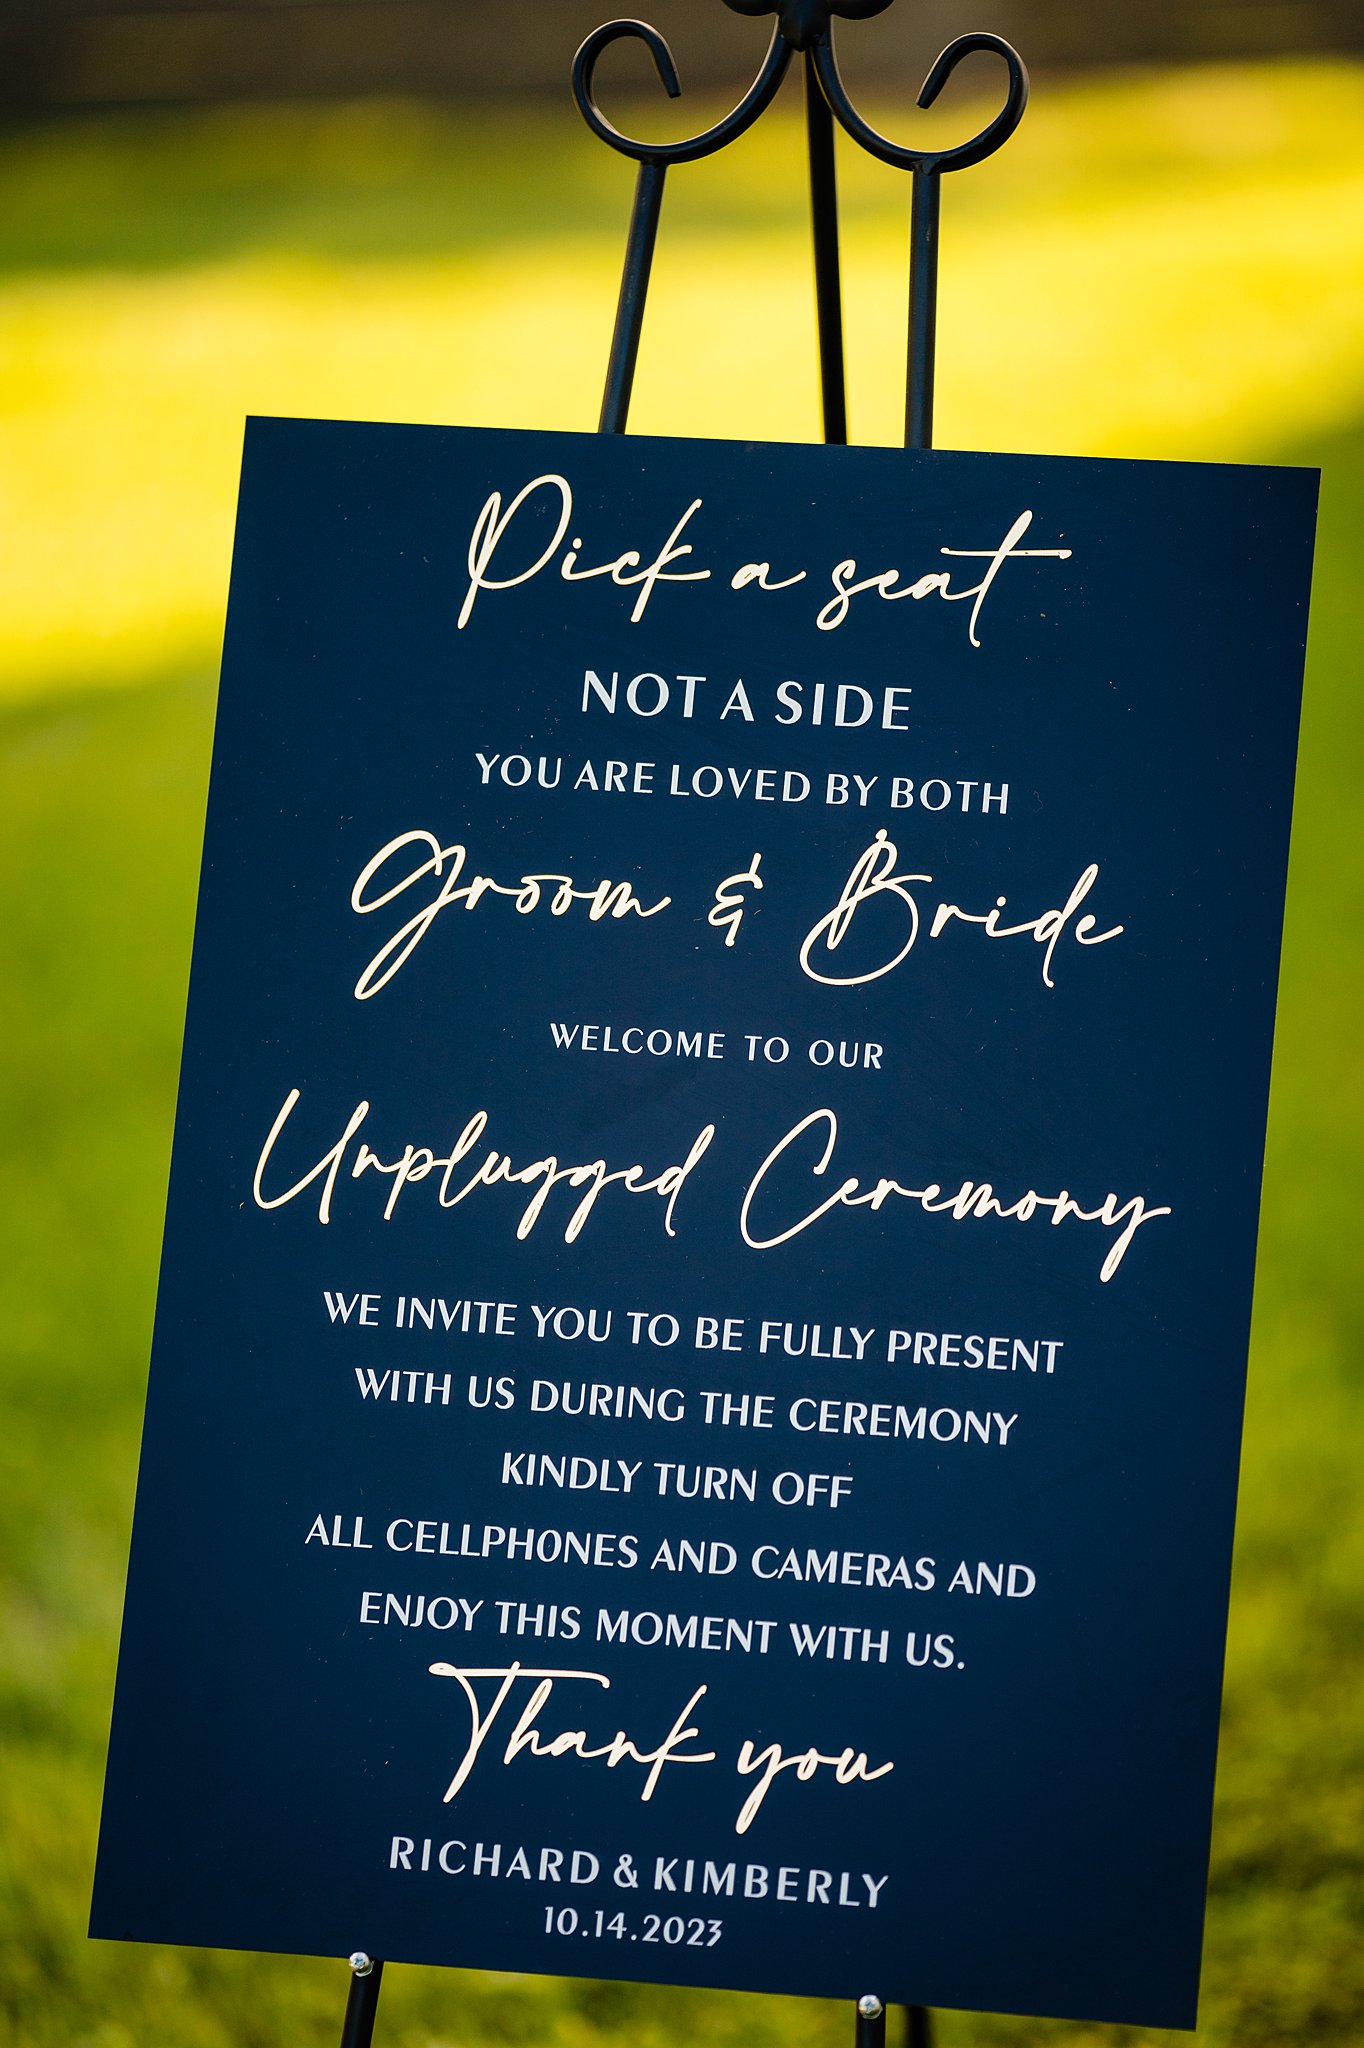 Pick a seat
NOT A SIDE
YOU ARE LOVED BY BOTH
Groom & Bride
WELCOME TO OUR
Unplugged Ceremony
WE INVITE YOU TO BE FULLY PRESENT
WITH US DURING THE CEREMONY
KINDLY TURN OFF
ALL CELLPHONES AND CAMERAS AND
ENJOY THIS MOMENT WITH US.
Thank you
RICHARD & KIMBERLY
10.14.2023